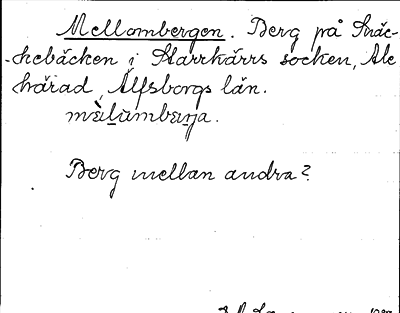 Mellombergen. Berg på Sträc-
-kebäcken i Starrkärrs socken, Ale
härad, Älfsborgs län.
Berg mellan andra?